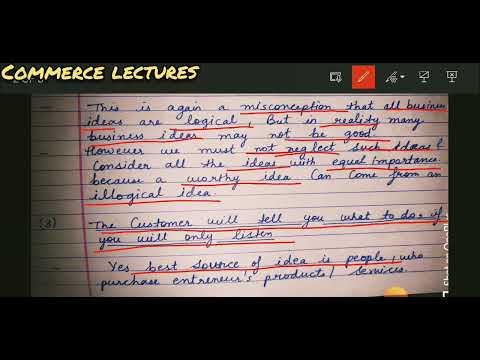 COMMERCE LECTURES
This is again a misconception that all business
ideas are logical, But in reality many
business ideas may not be good.
However we must not neglect such ideas &
Consider all the ideas with equal importance
because a worthy idea can come from an
illogical idea.
(3) The Customer will tell you what to do, if
you will only listen
Yes best source of idea is people, who
purchase entreneur's products/ services.